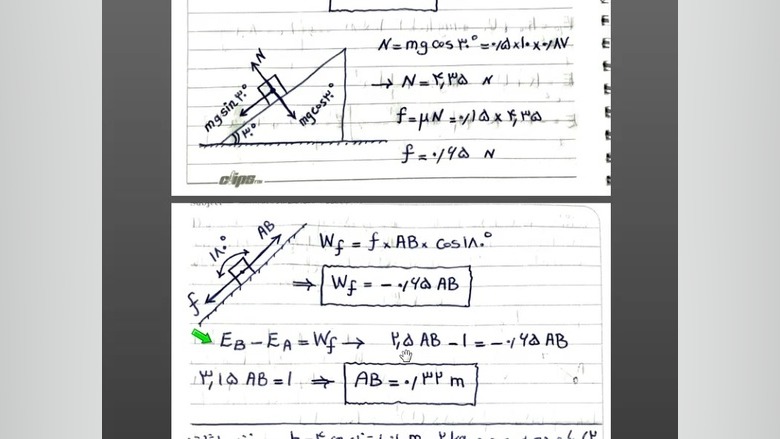 N = mg cos ۳۰° = ۰/۵ × ۱۰ × ۰/۸۷
→ N = ۴,۳۵ N
f = μN = ۰/۱۵ × ۴,۳۵
f = ۰/۶۵ N
N
mg sin ۳۰°
mg cos ۳۰°
۳۰°
clips
AB
۱۸۰°
f
W_f = f × AB × cos ۱۸۰°
⇒ W_f = -۰/۶۵ AB
E_B - E_A = W_f → ۲,۵ AB - ۱ = -۰/۶۵ AB
۳,۱۵ AB = ۱ ⇒ AB = ۰/۳۲ m